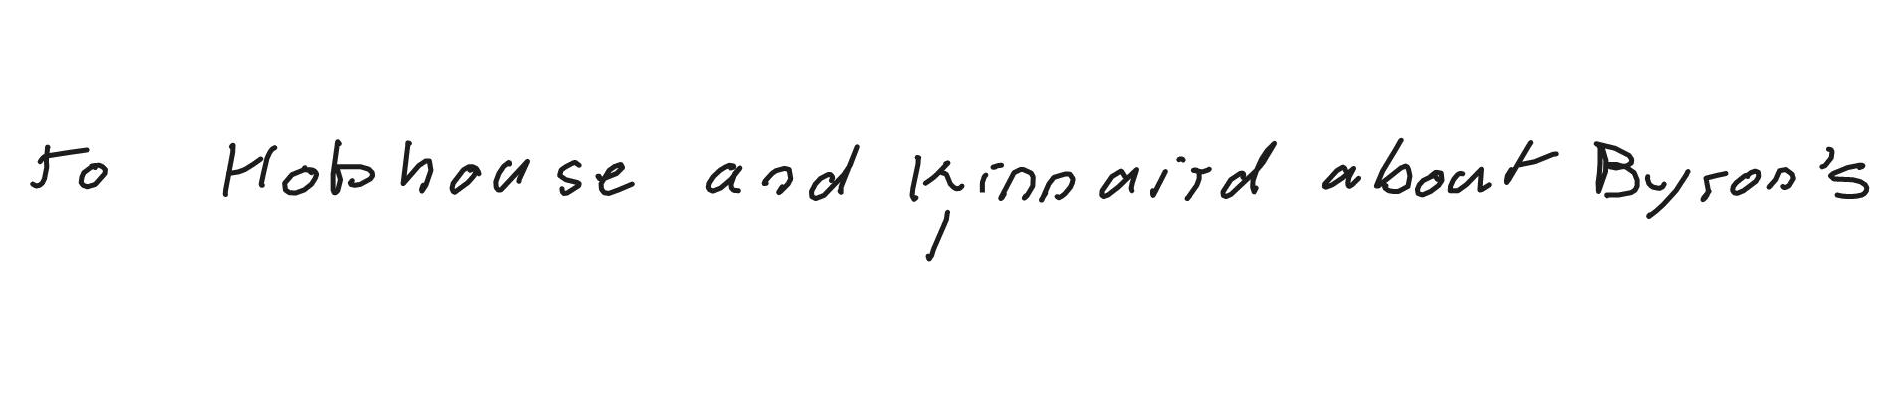 to Hobhouse and Kinnaird about Byron's